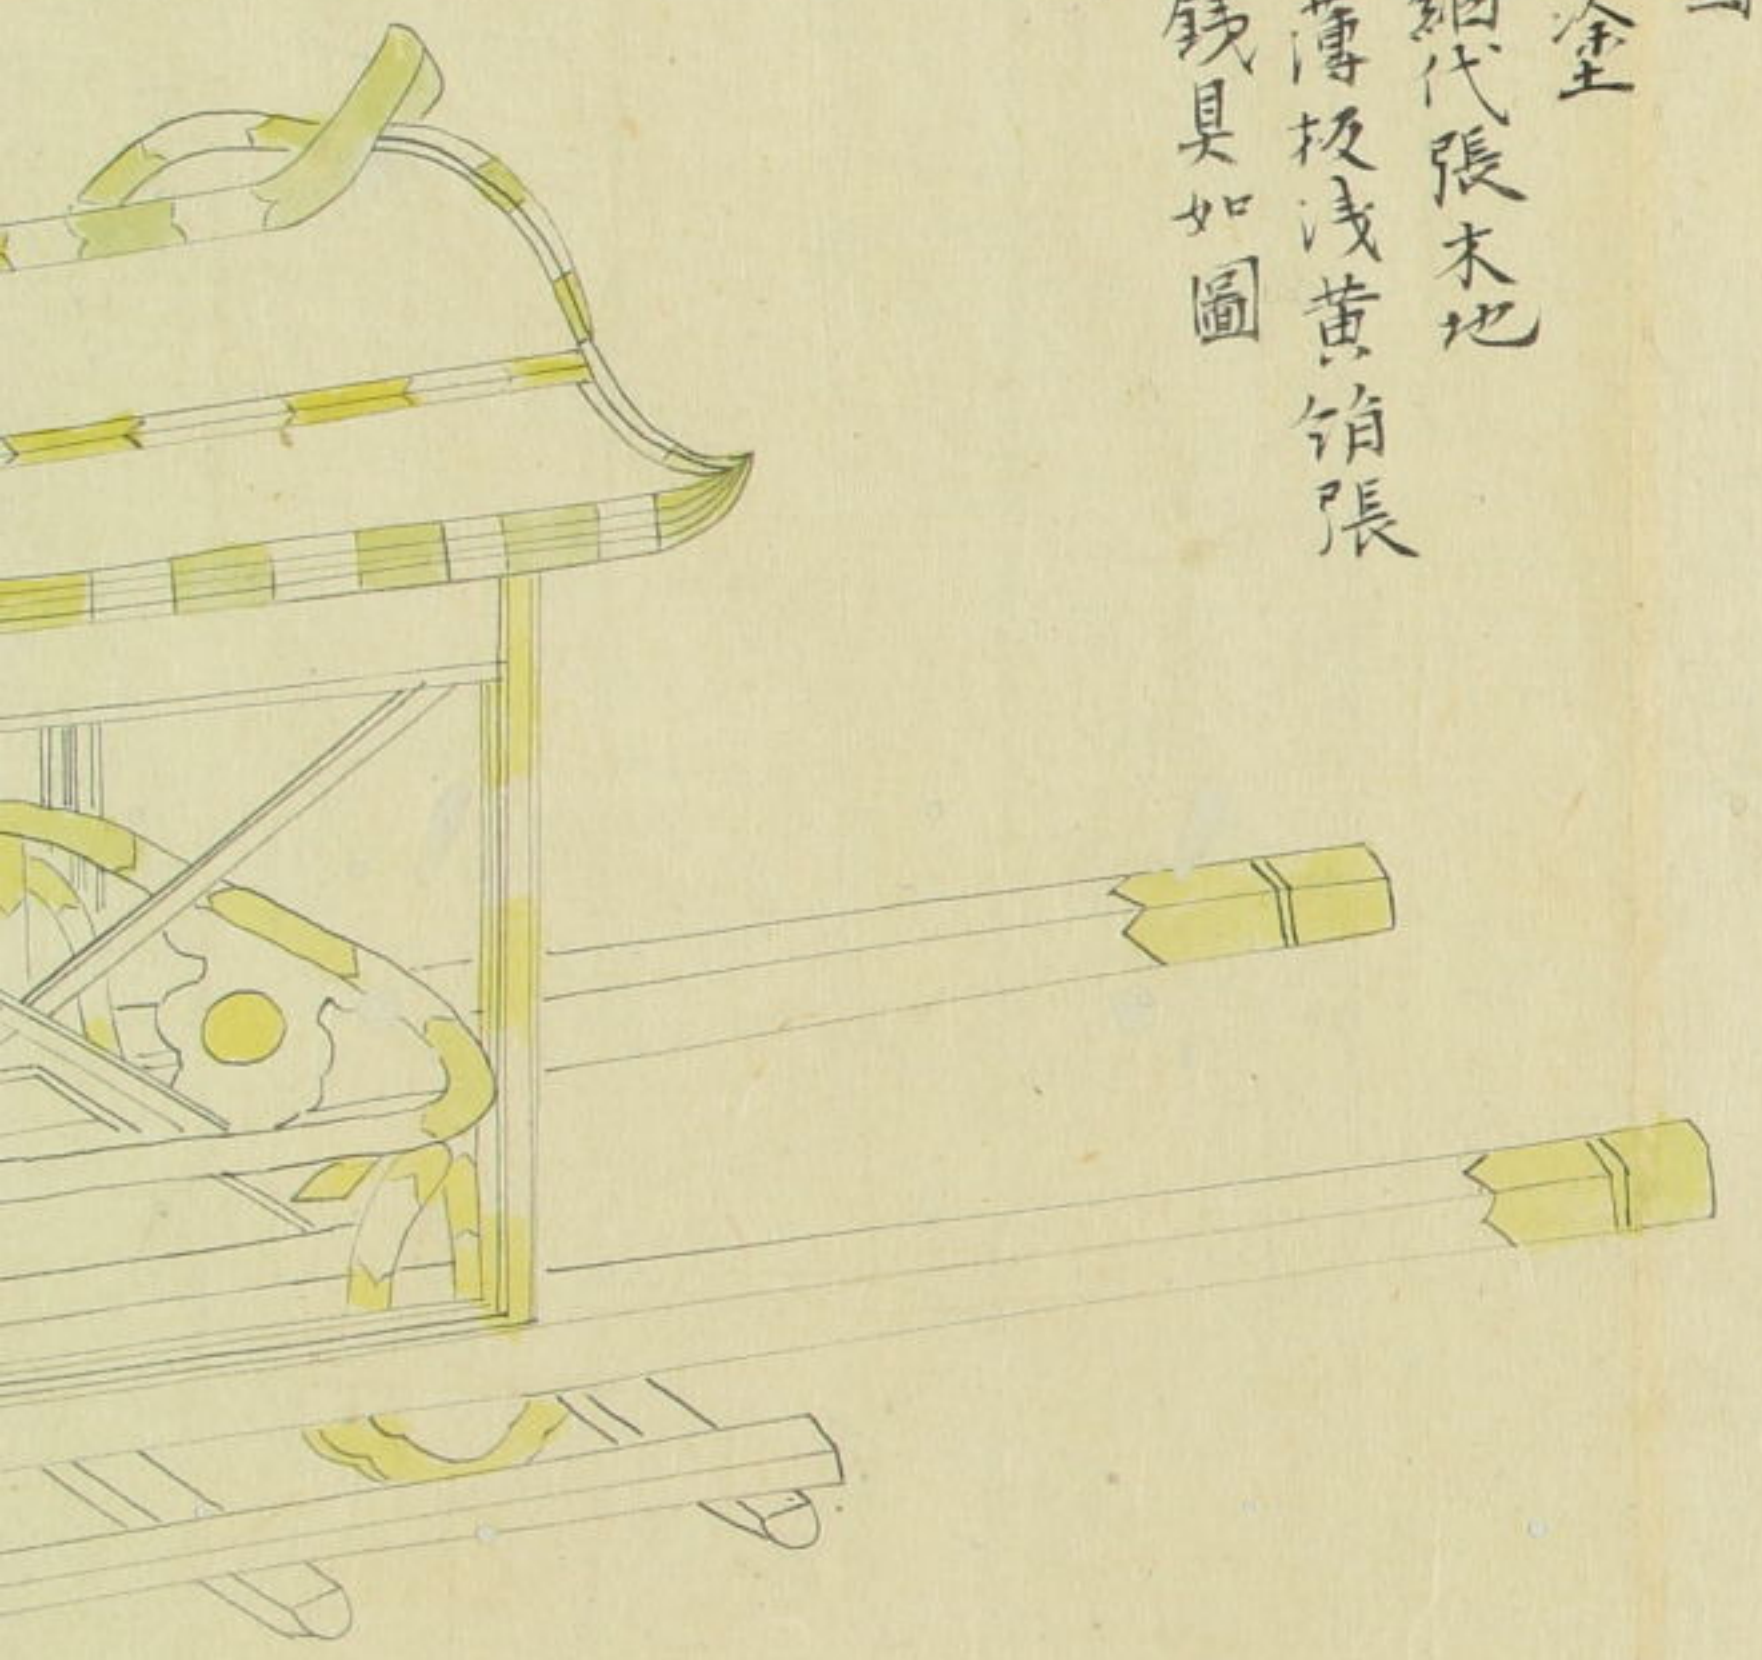 塗
網代張木地
薄板浅黄絹張
銕具如圖